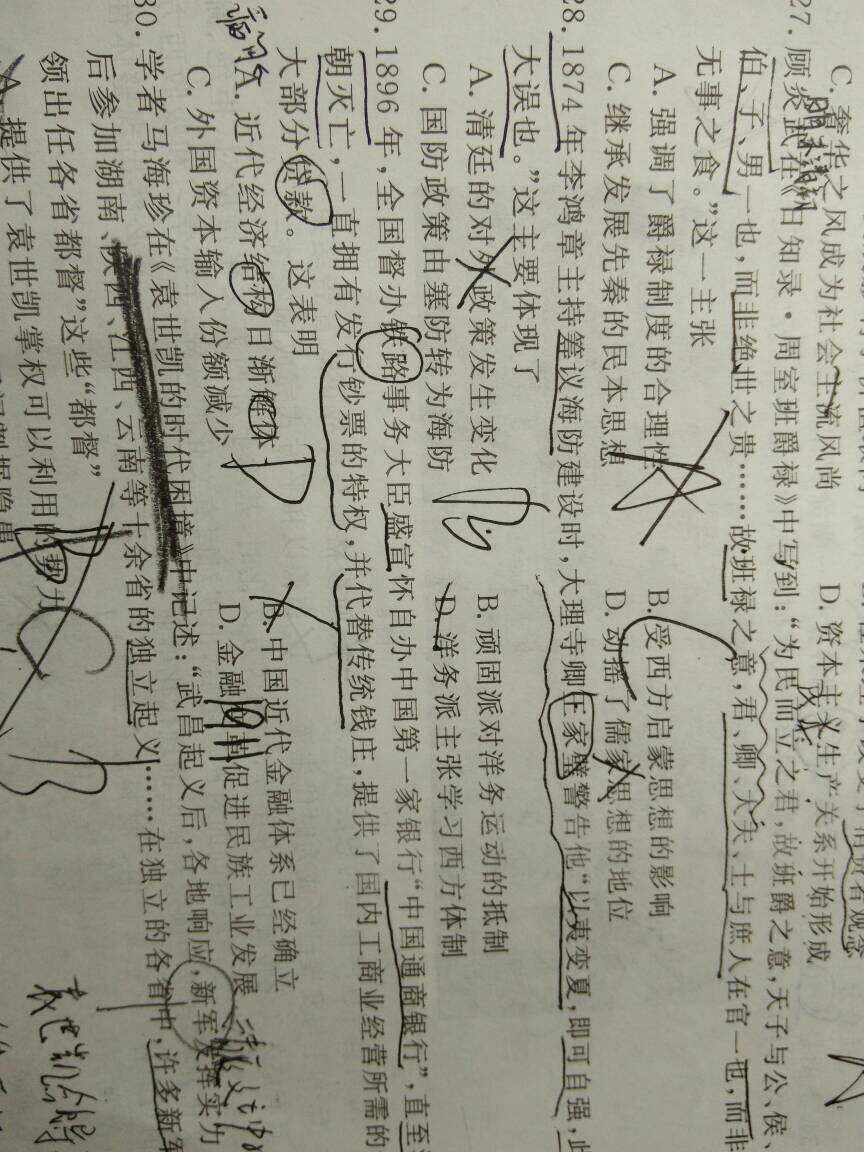 C. 奢华之风成为社会主流风尚 D. 资本主义生产关系开始形成
27. 顾炎武在《日知录·周室班爵禄》中写到：“为民而立之君，故班爵之意，天子与公、侯、
伯、子、男一也，而非绝世之贵……故班禄之意，君、卿、大夫、士与庶人在官一也，而非
无事之食。”这一主张
A. 强调了爵禄制度的合理性 B. 受西方启蒙思想的影响
C. 继承发展先秦的民本思想 D. 动摇了儒家思想的地位
28. 1874年李鸿章主持筹议海防建设时，大理寺卿王家璧警告他“以夷变夏，即可自强，此
大误也。”这主要体现了
A. 清廷的对外政策发生变化 B. 顽固派对洋务运动的抵制
C. 国防政策由塞防转为海防 D. 洋务派主张学习西方体制
29. 1896年，全国督办铁路事务大臣盛宣怀自办中国第一家银行“中国通商银行”，直至
朝灭亡，一直拥有发行钞票的特权，并代替传统钱庄，提供了国内工商业经营所需的
大部分贷款。这表明
A. 近代经济结构日渐解体 B. 中国近代金融体系已经确立
C. 外国资本输入份额减少 D. 金融变革促进民族工业发展
30. 学者马海珍在《袁世凯的时代困境》中记述：“武昌起义后，各地响应，新军发挥实力
后参加湖南、陕西、江西、云南等十余省的独立起义……在独立的各省中，许多新军
领出任各省都督”这些“都督”
A. 提供了袁世凯掌权可以利用的势力